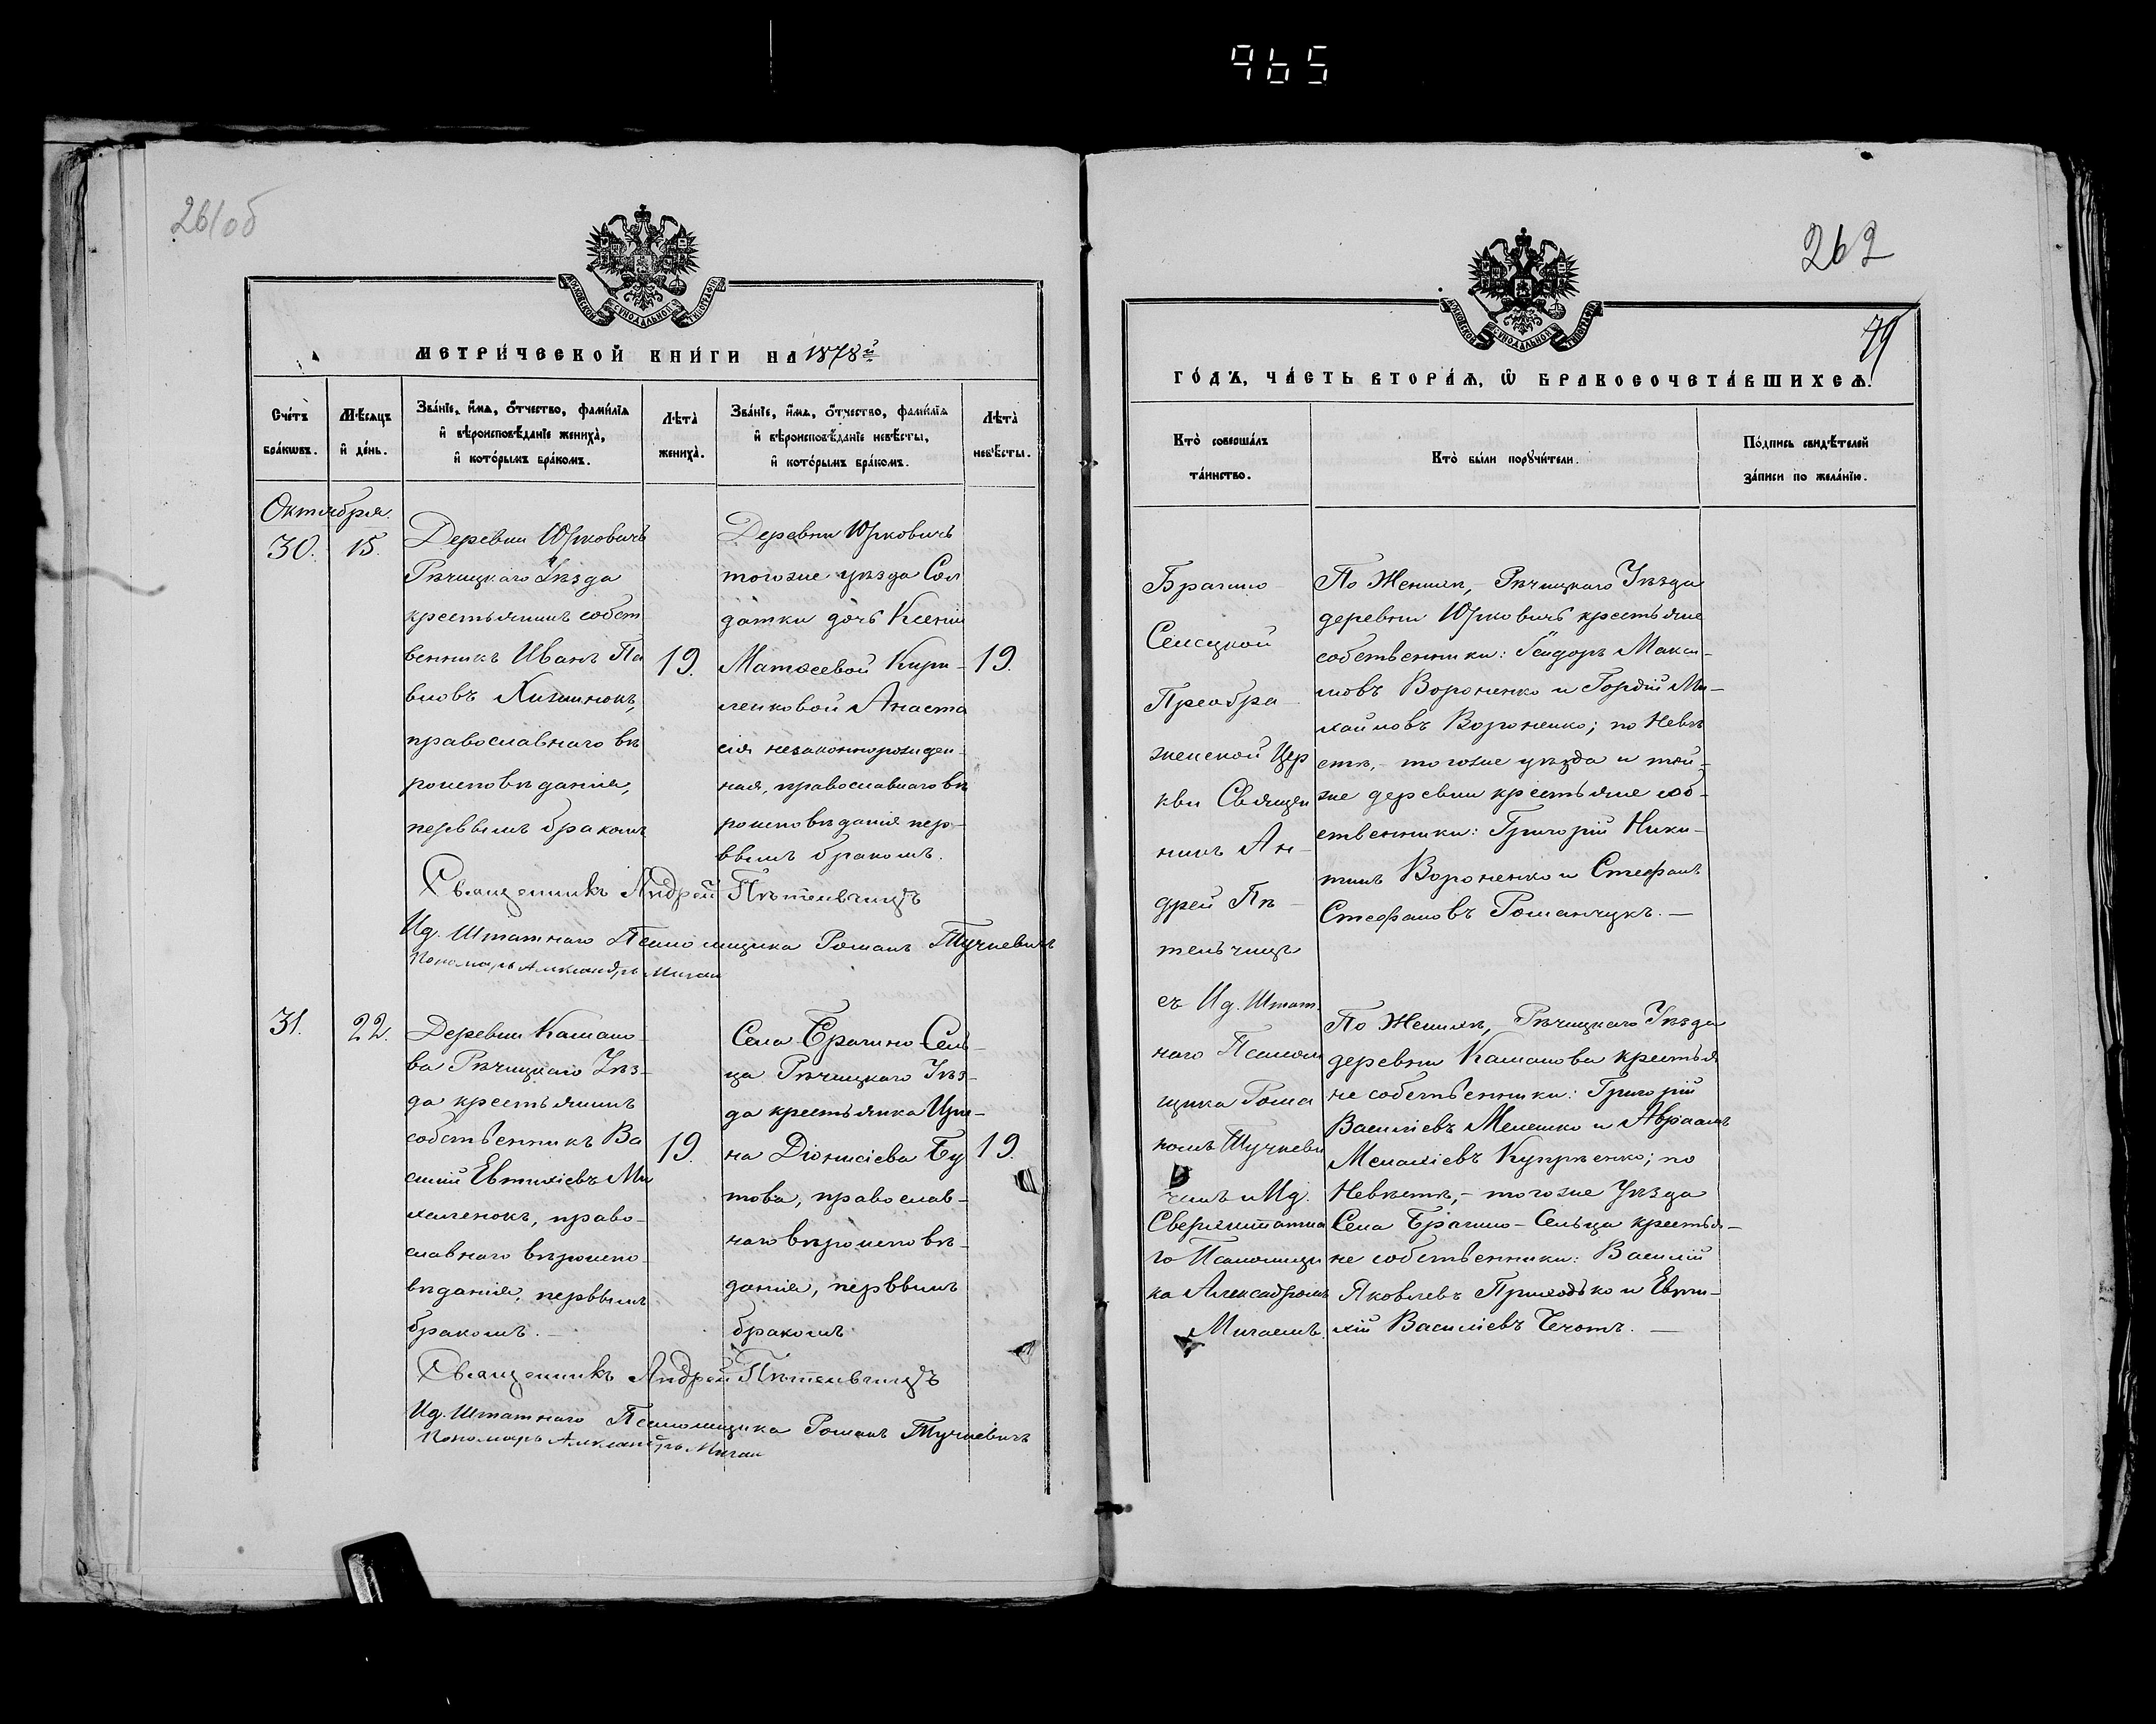 965
261об
МОСКОВСКОЙ СУНОДАЛЬНОЙ ТИПОГРАФІИ
МЕТРИ́ЧЕСКОЙ КНИ́ГИ НА 1878й
Сче́тъ бра́кωвъ.
Мѣ́сяцъ и҆ де́нь.
Зва́нїе, и҆́мѧ, ѻ҆́тчество, фами́лїѧ
и҆ вѣроисповѣ́данїе жениха̀,
и҆ кото́рымъ бра́комъ.
Лѣта̀ жениха̀.
Зва́нїе, и҆́мѧ, ѻ҆́тчество, фами́лїѧ
и҆ вѣроисповѣ́данїе невѣ́сты,
и҆ кото́рымъ бра́комъ.
Лѣта̀ невѣ́сты.
Октября.
30.
15.
Деревни Юрковичъ
Рѣчицкаго Уѣзда
крестьянинъ собст
венникъ Иванъ Па
вловъ
православнаго вѣ
роисповѣданія,
первымъ бракомъ
19.
Деревни Юрковичъ
тогоже уѣзда Сол
датки дочь Ксеніи
Матѳеевой Кири-
ленковой Анаста
сія незаконнорожден-
ная, православнаго вѣ
роисповѣданія пер-
вымъ бракомъ.
19.
Священникъ Андрей Пѣтельчицъ
Ид. Штатнаго Псаломщика Романъ Тучкевичъ
Пономарь Александръ Мигай
31.
22.
Деревни Камано-
ва Рѣчицкаго Уѣз-
да крестьянинъ
собственникъ Ва
силій Евтихіевъ Ми
халенокъ, право-
славнаго вѣроиспо-
вѣданія, первымъ
бракомъ.
19.
Села Брагино-Сель-
ца Рѣчицкаго Уѣз-
да крестьянка Ири-
на Діонисіева Бу
това, православ-
наго вѣроисповѣ-
данія, первымъ
бракомъ
19.
Священникъ Андрей Пѣтельчицъ
Ид. Штатнаго Псаломщика Романъ Тучкевичъ
Пономарь Александръ Мигай
262
79
МОСКОВСКОЙ СУНОДАЛЬНОЙ ТИПОГРАФІИ
ГО́ДЪ, ЧА́СТЬ ВТОРА́Ѧ, Ѽ БРАКОСОЧЕТА́ВШИХСѦ.
Кто̀ соверша́лъ
та́инство.
Кто̀ бы́ли поручи́тели.
По́дпись свидѣ́телей
за́писи по жела́нїю.
Брагино
Селецкой
Преобра
женской Цер
кви Священ
никъ Ан-
дрей Пѣ-
тельчицъ
съ Ид. Штат.
наго Псалом
щика Рома
номъ Тучкеви
чемъ и Ид.
Сверхштатна
го Псаломщи
ка Александромъ
Мигаемъ.
По Женихѣ, Рѣчицкаго Уѣзда
деревни Юрковичъ крестьяне
собственники: Исидоръ Макси-
мовъ Вороненко и Гордій Ми-
хайловъ Вороненко; по Невѣ
стѣ,- тогоже уѣзда и той-
же деревни крестьяне соб-
ственники: Григорій Ники-
тинъ Вороненко и Стефанъ
Стефановъ Романчукъ.
По Женихѣ, Рѣчицкаго Уѣзда
деревни Каманова крестья
не собственники: Григорій
Василіевъ Мелешко и Авраамъ
Купріенко; по
Невѣстѣ,- тогоже Уѣзда
Села Брагино-Сельца крестья-
не собственники: Василій
Яковлевъ Приходько и Евти-
хій Василіевъ Чечотъ.